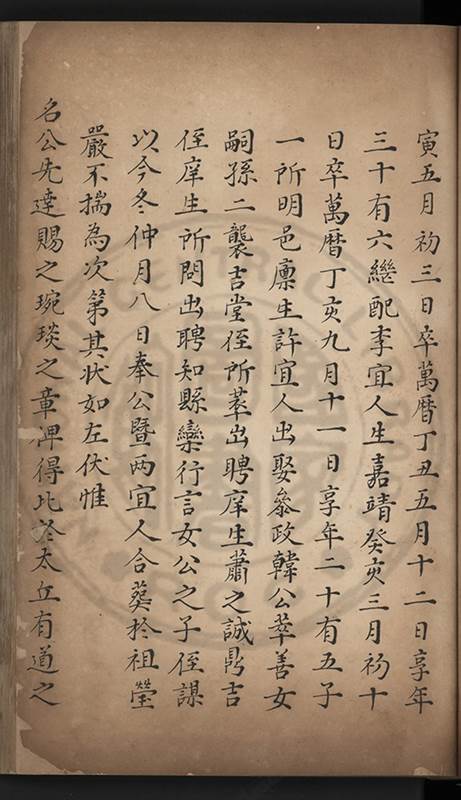 寅五月初三日卒萬曆丁丑五月十二日享年
三十有六繼配李宜人生嘉靖癸亥三月初十
日卒萬曆丁亥九月十一日享年二十有五子
一所明邑廩生許宜人出娶叅政韓公萃善女
嗣孫二襲吉堂侄所萃出聘庠生蕭之誠鼎吉
侄庠生所問出聘知縣欒行言女公之子侄謀
以今冬仲月八日奉公暨两宜人合葬扵祖塋
嚴不揣為次第其状如左伏惟
名公先達賜之琬琰之章俾得比於太丘有道之